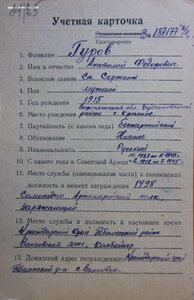 Учетная карточка
Удостоверение
Эр 187177 б/о
1. Фамилия Гуров
2. Имя и отчество Анатолий Федорович
3. Воинское звание Ст. Сержант
4. Пол мужской
5. Год рождения 1915
6. Место рождения Воронежская обл. район с. Красное
7. Партийность (с какого года) Беспартийный
8. Образование Низшее
9. Национальность Русский
10. С какого года в Советской Армии
11. Место службы (наименование части) и занимаемая
должность в момент награждения 1498
Самоходно Артиллерийский полк.
Заряжающий
12. Место службы и должность в настоящее время
Краснодарский Край Тбилисский район
Ванновская МТС. Комбайнер
13. Домашний адрес награжденного Краснодарский край
Тбилисский р-н с. Ванновка